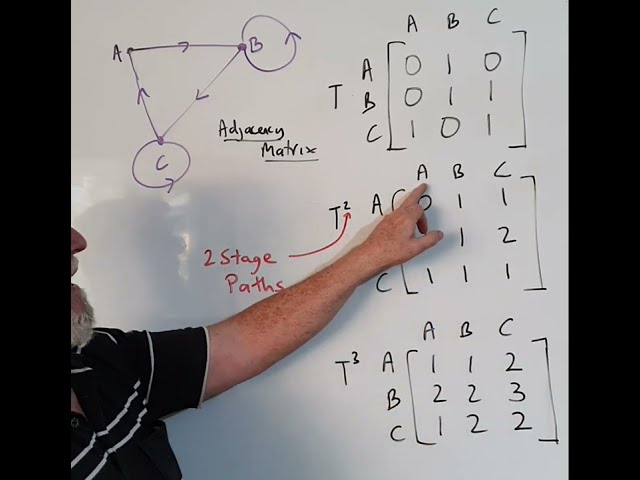 A
B
C
Adjacency
Matrix
A B C
A 0 1 0
T B 0 1 1
C 1 0 1
A B C
T² A 0 1 1
1 2
C 1 1 1
2 Stage
Paths
A B C
T³ A 1 1 2
B 2 2 3
C 1 2 2